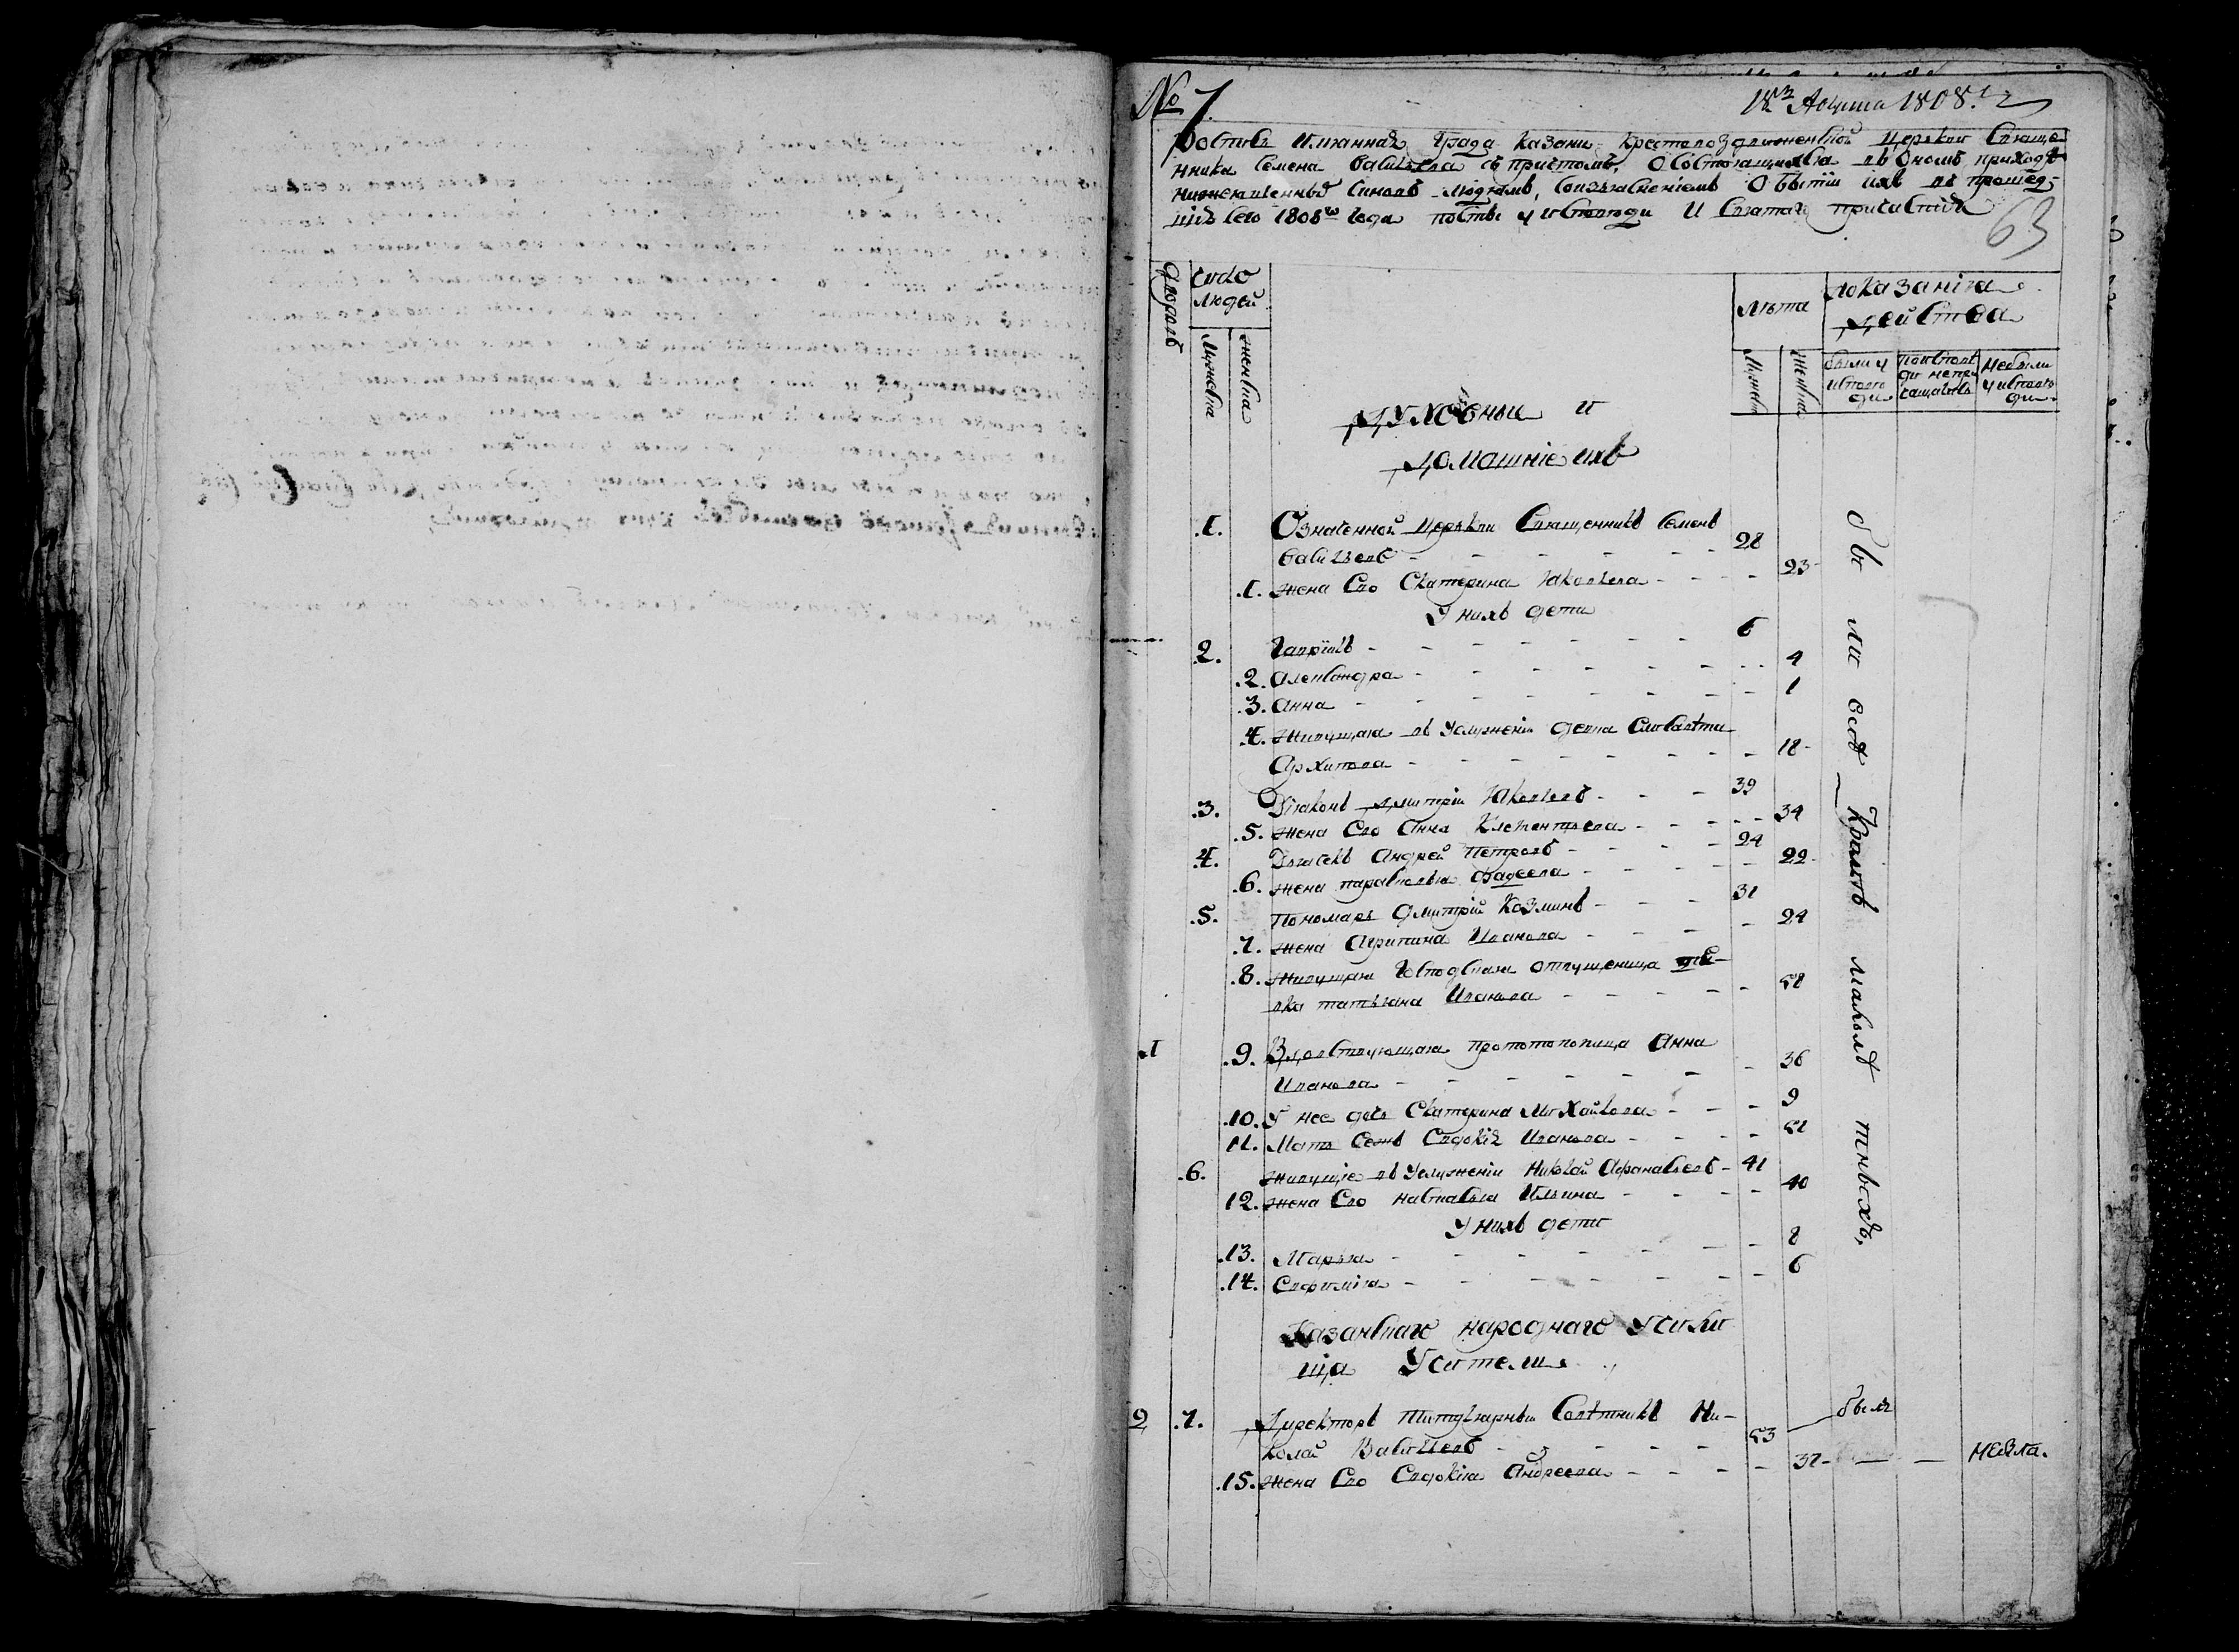 № 7.
Августа 1808.
Роспись именная Града Казани Крестовоздвиженской церкви Священ
ника Семена Васильева съ причтомъ, О состоящихся въ Ономъ приходѣ
нижеявленныхъ чиновъ людехъ, сизъясненіемъ О бытіи ихъ въ прошед
шій сего 1808го Года постъ у исповеди И Святаго причастія
63
Дворовъ
число
людей
Мужеска
женска
Лѣта
Мужеска
Женска
показанія
действа
были у
исповѣ
ди
поисповѣ
ди непри
чащались
небыли
у исповѣ
ди
Духовныи и
Домашніе ихъ
.1. Означенной церкви Священникъ Семенъ
Васильевъ - 28
.1. жена Его Екатерина Яковлева - 23
У нихъ дети
2. Гаврійлъ - 6
.2. Александра - 4
.3. Анна - 1
.4. живущая въ Услуженіи девка Елисавета
Архипова - 18
.3. Діаконъ Димитрій Яковлевъ - 39
.5. жена Его Анна Клементьева - 34
.4. Дьячекъ Андрей Петровъ - 24
.6. жена парасковья Фадеева - 22
.5. Пономарь Дмитрій Козминъ - 31
.7. жена Агрипина Иванова - 24
.8. живущая Господская отпущеница дѣ
вка татьяна Иванова - 58
.1 .9. Вдовствующая протопопица Анна
Иванова - 36
.10. У нее дочь Екатерина Михайлова - 9
11. Мать Еянъ Евдокія Иванова - 51
.6. живущіе въ Услуженіи Николай Афанасьевъ - 41
12. жена Его настасья Ильина - 40
У нихъ дети
.13. Марья - 8
.14. Евфимія - 6
бы ли всѣ Кромѣ малолѣтнѣхъ,
Казанскаго народнаго Учили
ща Учители
2 .7. Директоръ титулярный Совѣтникъ Ни
колай Васильевъ - 53 былъ
.15. жена Его Евдокія Андреева - 37 - небыла.